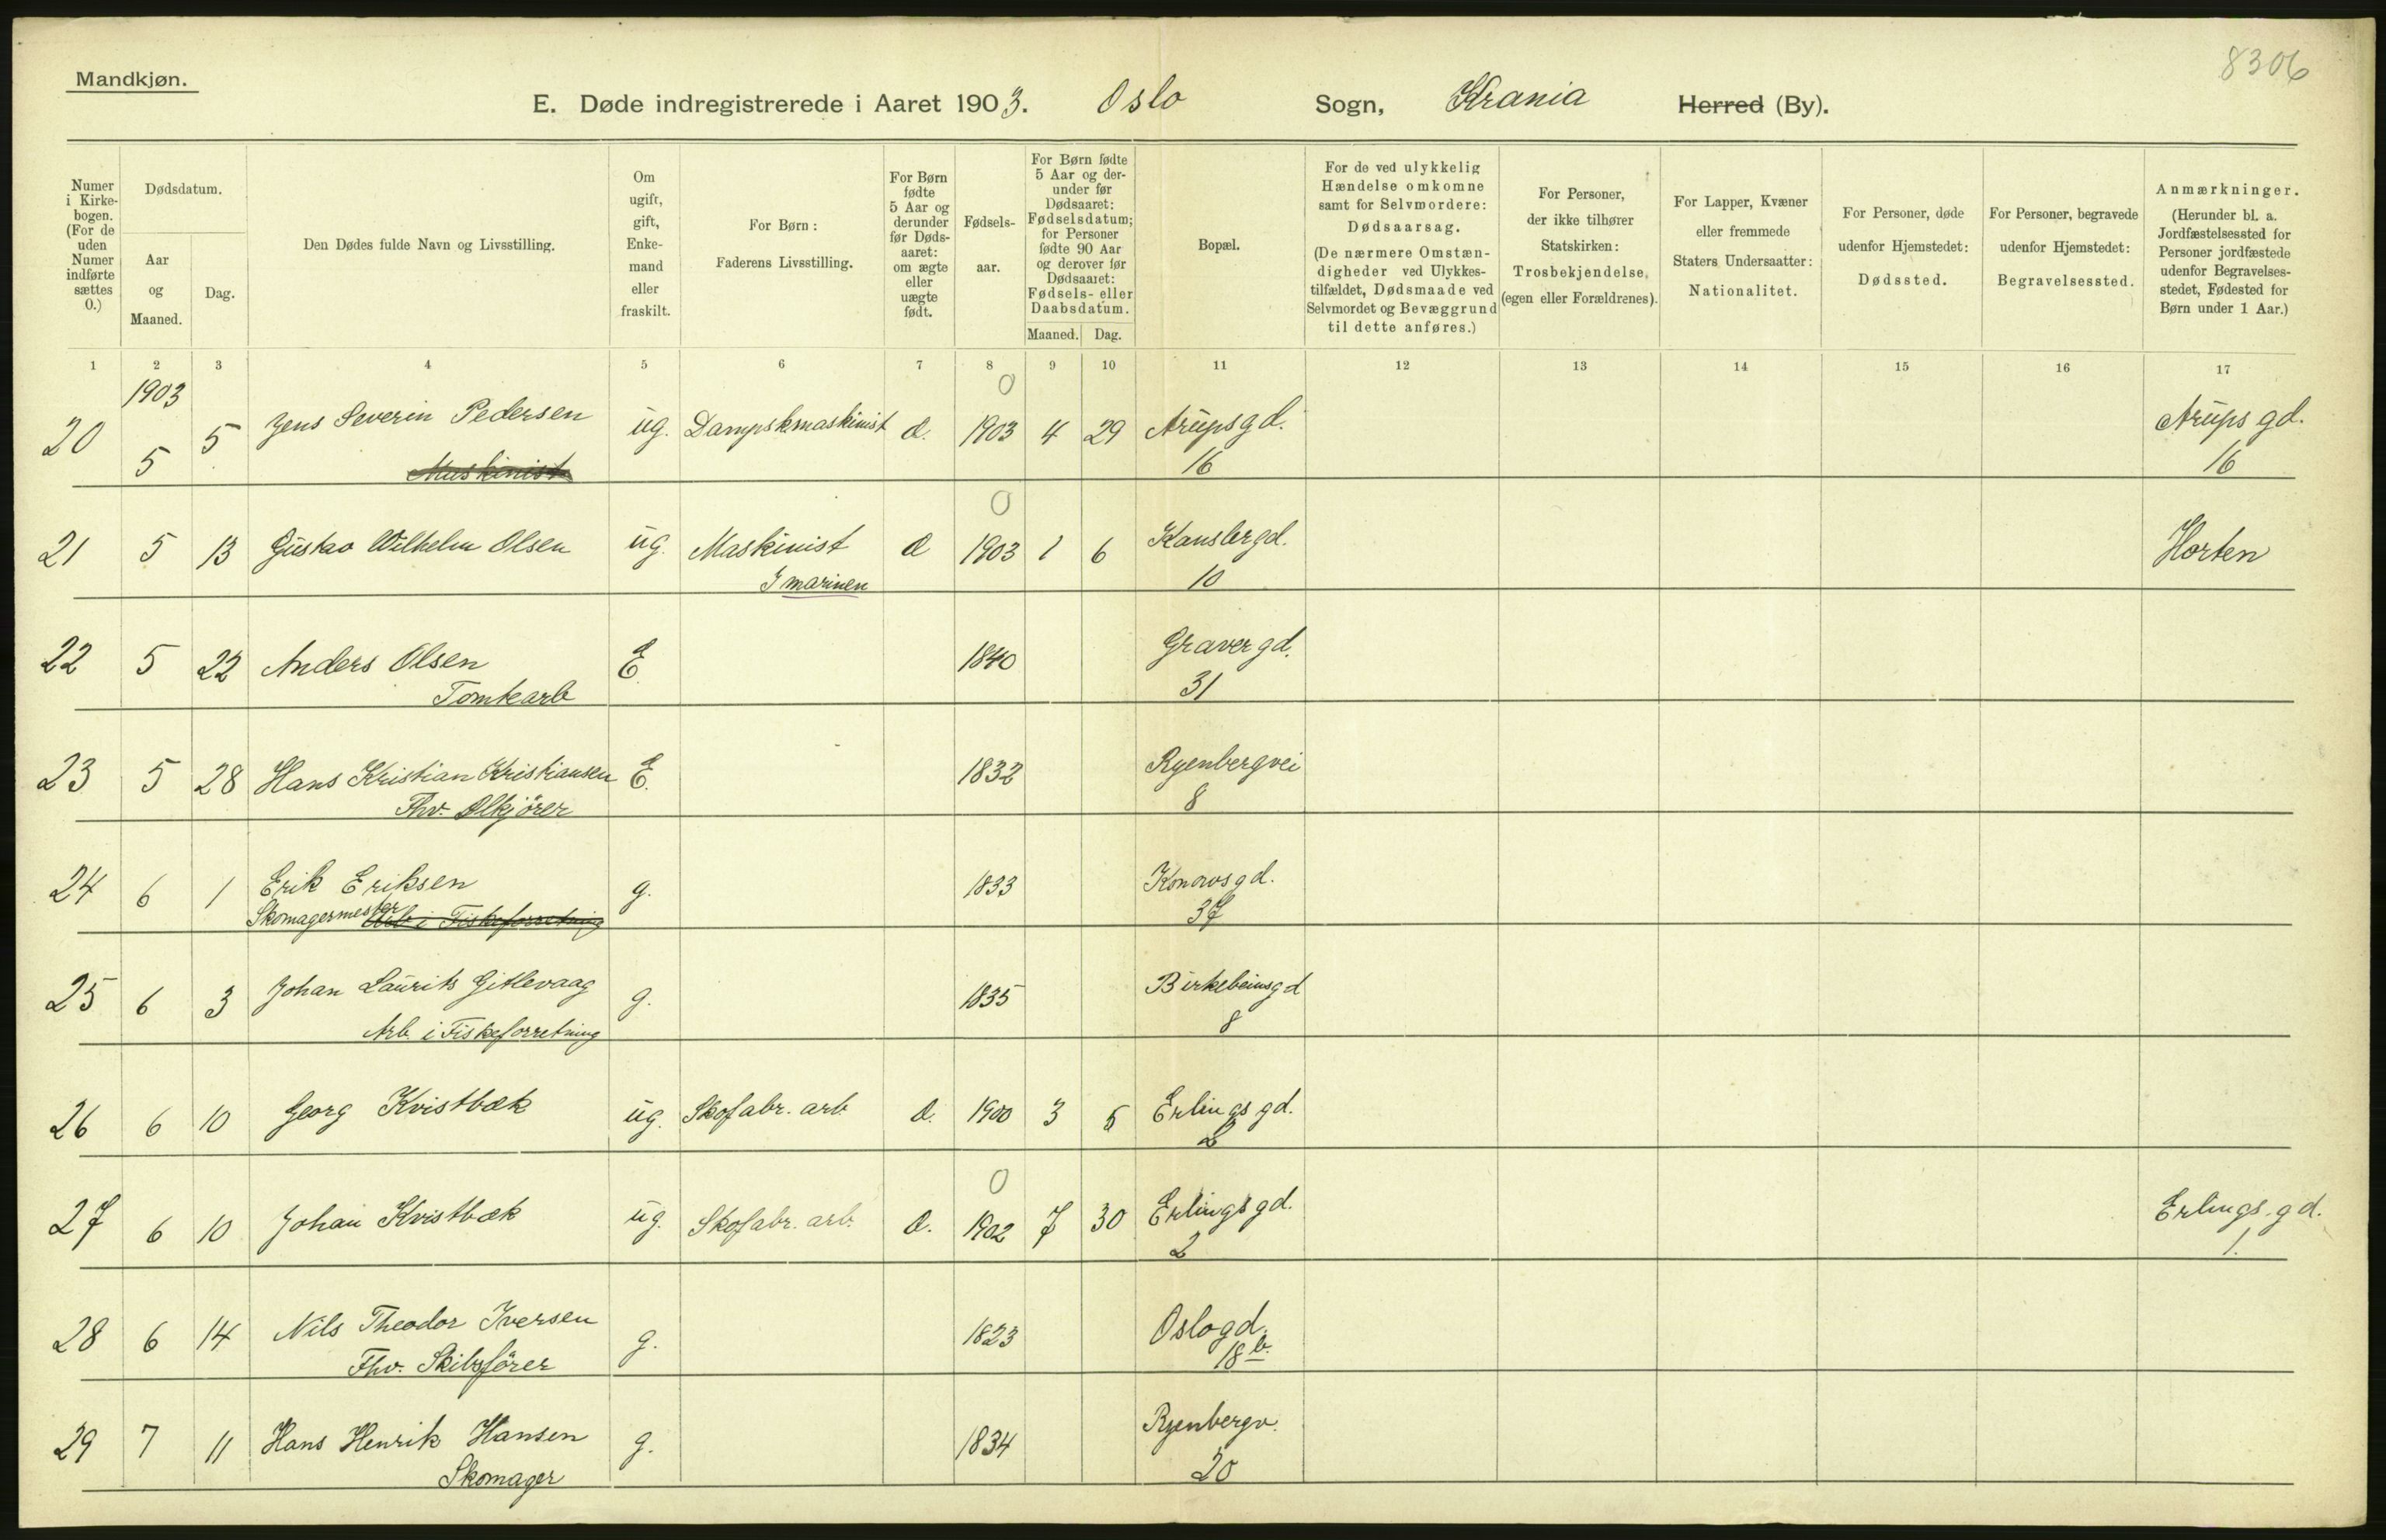 8306
Mandkjøn.
E. Døde indregistrerede i Aaret 1903. Oslo Sogn, Krania Herred (By).
Numer i Kirkebogen. (For de uden Numer indførte sættes 0.)
Dødsdatum.
Aar og Maaned.
Dag.
Den Dødes fulde Navn og Livsstilling.
Om ugift, gift, Enkemand eller fraskilt.
For Børn: Faderens Livsstilling.
For Børn fødte 5 Aar og derunder før Dødsaaret: om ægte eller uægte født.
Fødselsaar.
For Børn fødte 5 Aar og derunder før Dødsaaret: Fødselsdatum; for Personer fødte 90 Aar og derover før Dødsaaret: Fødsels- eller Daabsdatum.
Maaned. Dag.
Bopæl.
For de ved ulykkelig Hændelse omkomne samt for Selvmordere: Dødsaarsag. (De nærmere Omstændigheder ved Ulykkestilfældet, Dødsmaade ved Selvmordet og Bevæggrund til dette anføres.)
For Personer, der ikke tilhører Statskirken: Trosbekjendelse. (egen eller Forældrenes).
For Lapper, Kvæner eller fremmede Staters Undersaatter: Nationalitet.
For Personer, døde udenfor Hjemstedet: Dødssted.
For Personer, begravede udenfor Hjemstedet: Begravelsessted.
Anmærkninger. (Herunder bl. a. Jordfæstelsessted for Personer jordfæstede udenfor Begravelsesstedet, Fødested for Børn under 1 Aar.)
1 2 3 4 5 6 7 8 9 10 11 12 13 14 15 16 17
1903 0
20 5 5 Jens Severin Pedersen ug. Dampsk.maskinist Æ. 1903 4 29 Arupsgd. 16 Arups gd. 16
Maskinist
0
21 5 13 Gustav Wilhelm Olsen ug. Maskinist Æ 1903 1 6 Kanslergd. 10 Horten
I marinen
22 5 22 Anders Olsen E. 1840 Gravergd. 31
Tomtearb
23 5 28 Hans Kristian Kristiansen E. 1832 Ryenbergvei 8
Fhv. Ølkjører
24 6 1 Erik Eriksen g. 1833 Konowsgd. 37
Skomagermester Arb i Fiskeforretning
25 6 3 Johan Laurits Gitlevaag g. 1835 Birkebeinsgd 8
Arb. i Fiskeforretning
26 6 10 Georg Kvistbæk ug. Skofabr. arb Æ. 1900 3 5 Erlingsgd. 2
0
27 6 10 Johan Kvistbæk ug. Skofabr. arb. Æ. 1902 7 30 Erlingsgd. 2 Erlings. gd. 1.
28 6 14 Nils Theodor Iversen g. 1823 Oslogd. 18b.
Fhv. Skibsfører
29 7 11 Hans Henrik Hansen g. 1834 Ryenbergv. 20
Skomager